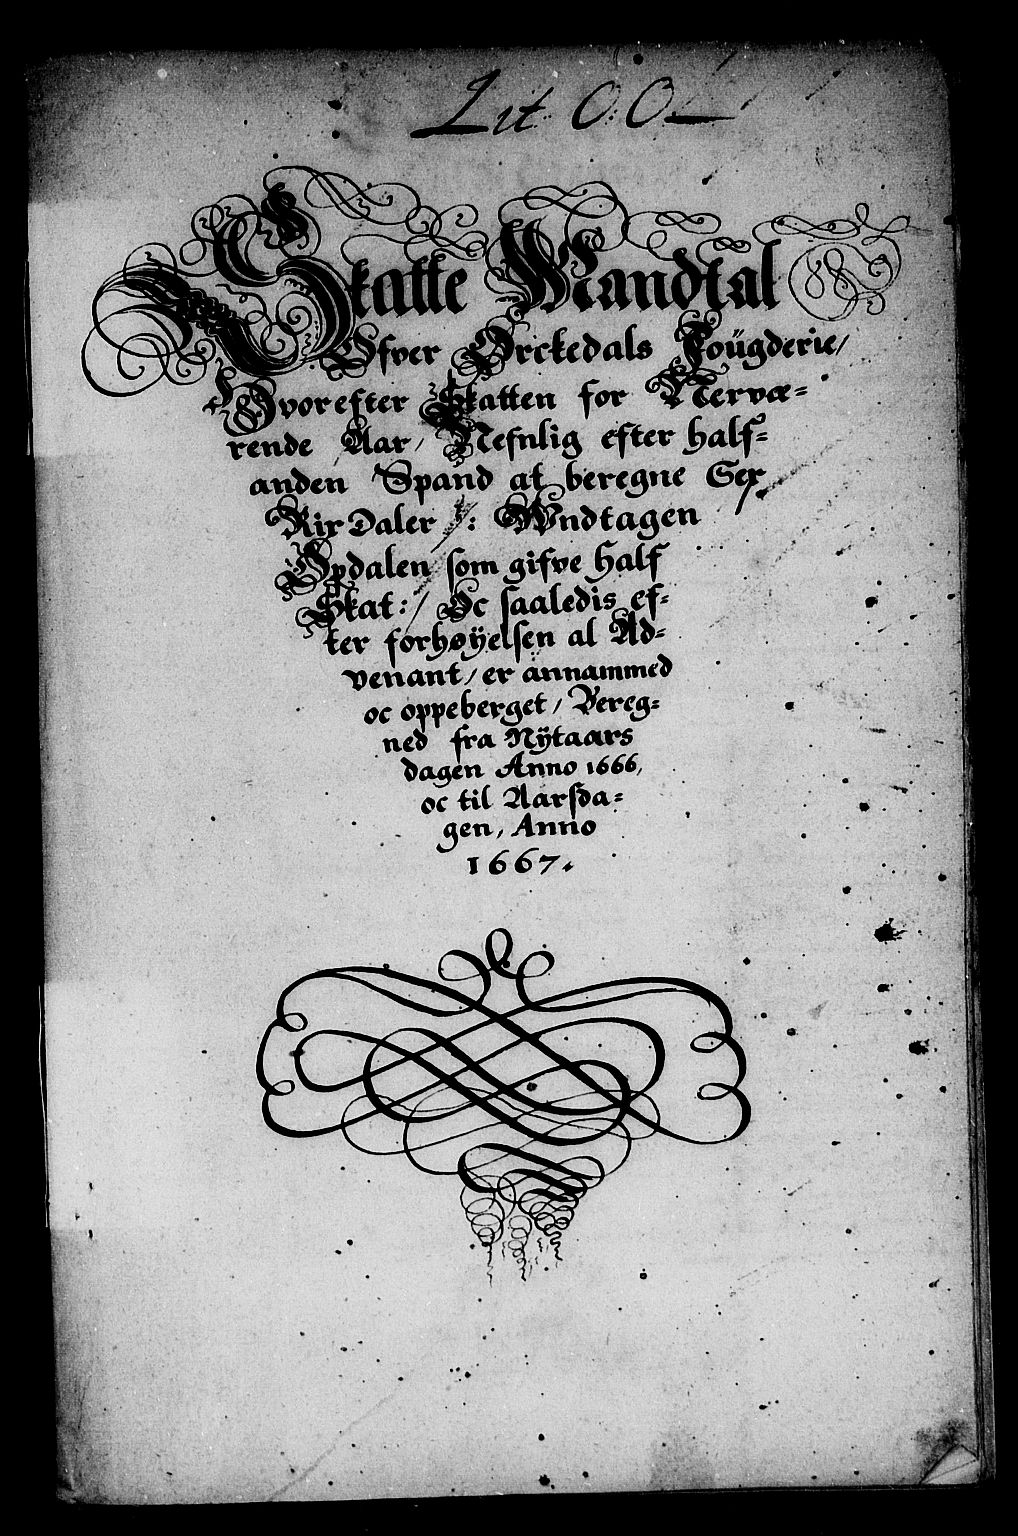 Lit O.O.
Skatte Mandtal
Ofver Ørckedals Foügderie/
Hvorefter Skatten for Nervæ=
rende Aar, Nefnlig efter half=
anden Spand at beregne Sex
Rix Daler /: Wndtagen
Opdalen som gifve half
Skat: / Oc saaledis ef=
ter forhøÿelsen al Ad=
venant/ er annammed
oc oppeberget/ Bereg=
ned fra Nÿtaars
dagen Anno 1666,
oc til Aarsda=
gen, Anno
1667.